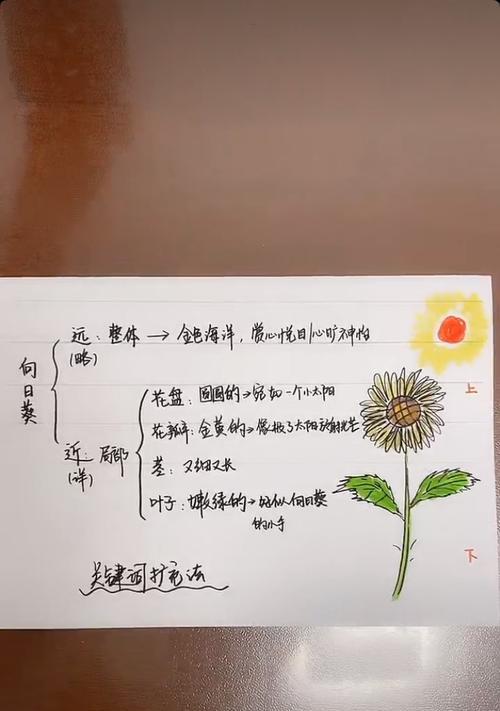 向日葵
远：整体 → 金色海洋，赏心悦目/心旷神怡
(略)
近：局部
(详)
花盘：圆圆的→宛如一个小太阳
花瓣：金黄的→像极了太阳放射光芒
茎：又细又长
叶子：嫩绿的→好似向日葵
的小手
关键词扩充法
上
下